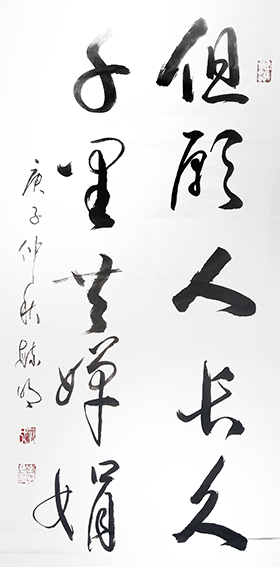 但愿人长久
千里共婵娟
庚子仲秋